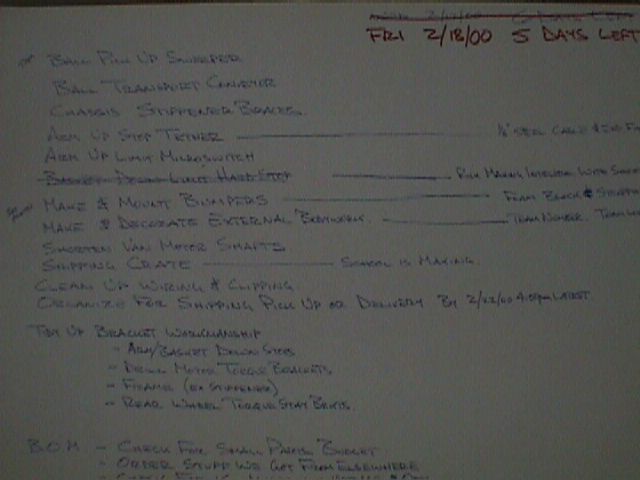 FRI 2/18/00 5 DAYS LEFT
BALL PICK UP SWEEPER
BALL TRANSPORT CONVEYOR
CHASSIS STIFFENER BRACES.
ARM UP STOP TETHER 1/8" STEEL CABLE &
ARM UP LIMIT MICROSWITCH
BASKET DOWN LIMIT HARD STOP
MAKE & MOUNT BUMPERS FOAM BLOCK &
MAKE & DECORATE EXTERNAL BODYWORK. TEAM NUMBER, TEAM
SHORTEN VAN MOTOR SHAFTS.
SHIPPING CRATE SCHOOL IS MAKING.
CLEAN UP WIRING & CLIPPING.
ORGANIZE FOR SHIPPING PICK UP OR DELIVERY BY 2/22/00 4:00pm LATEST.
TIDY UP BRACKET WORKMANSHIP
- ARM/BASKET DOWN STOPS
- DRILL MOTOR TORQUE BRACKETS
- FRAME (EX STIFFENER)
- REAR WHEEL TORQUE STAY BRKTS.
B.O.M - CHECK FOR SMALL PARTS BUDGET
- ORDER STUFF WE GOT FROM ELSEWHERE